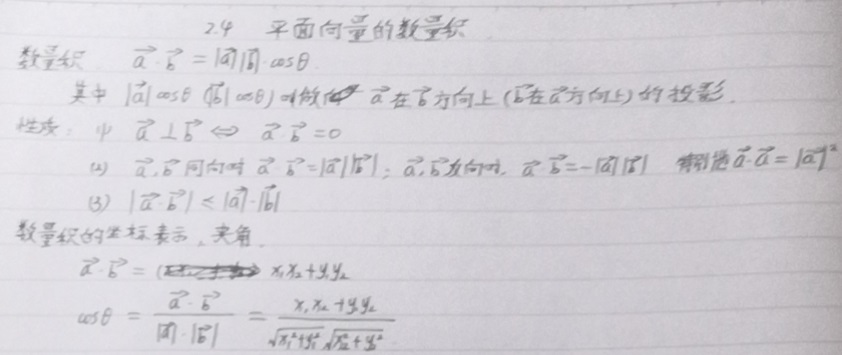 2.4 平面向量的数量积
数量积 a⃗·b⃗ = |a⃗||b⃗|·cosθ.
其中 |a⃗|cosθ (|b⃗|cosθ) 叫做 a⃗在b⃗方向上(b⃗在a⃗方向上)的投影.
性质: (1) a⃗⊥b⃗ ⇔ a⃗·b⃗=0
(2) a⃗,b⃗同向时 a⃗·b⃗=|a⃗||b⃗|; a⃗,b⃗反向时, a⃗·b⃗=-|a⃗||b⃗| 特别地 a⃗·a⃗=|a⃗|²
(3) |a⃗·b⃗| ≤ |a⃗|·|b⃗|
数量积的坐标表示, 夹角.
a⃗·b⃗ = x₁x₂+y₁y₂
cosθ = a⃗·b⃗ / |a⃗|·|b⃗| = x₁x₂+y₁y₂ / √x₁²+y₁² √x₂²+y₂²